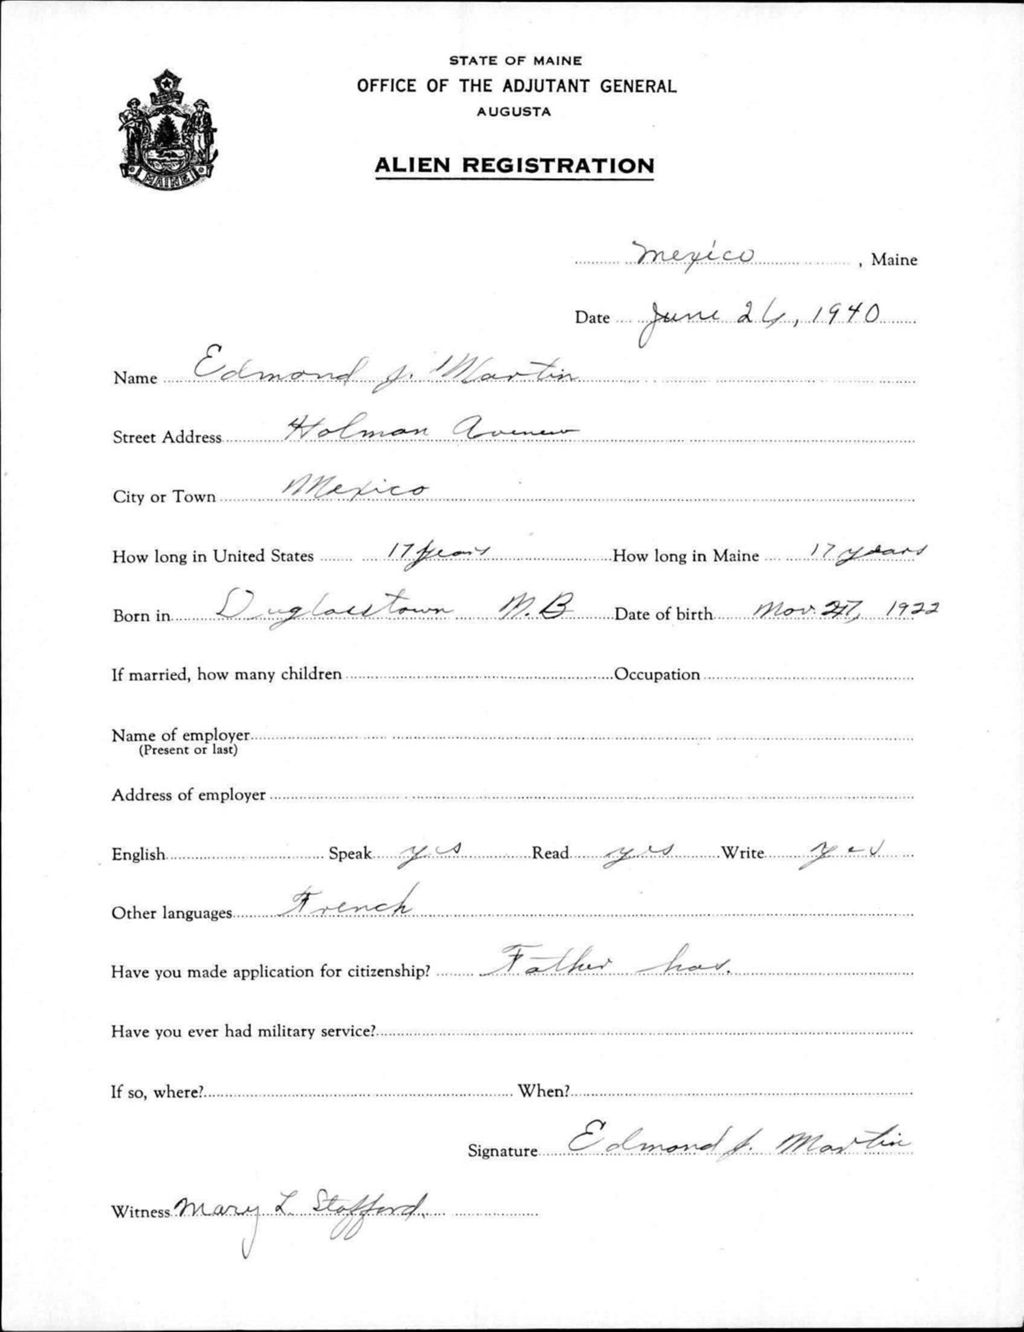 STATE OF MAINE
OFFICE OF THE ADJUTANT GENERAL
AUGUSTA
ALIEN REGISTRATION
MAINE
Mexico, Maine
Date June 26, 1940
Name Edmond J. Martin
Street Address Holman Avenue
City or Town Mexico
How long in United States 17 years How long in Maine 17 years
Born in Duglasstown N.B Date of birth Nov. 27, 1922
If married, how many children Occupation
Name of employer
(Present or last)
Address of employer
English Speak yes Read yes Write yes
Other languages French
Have you made application for citizenship? Father has.
Have you ever had military service?
If so, where? When?
Signature Edmond J. Martin
Witness Mary L. Stafford.